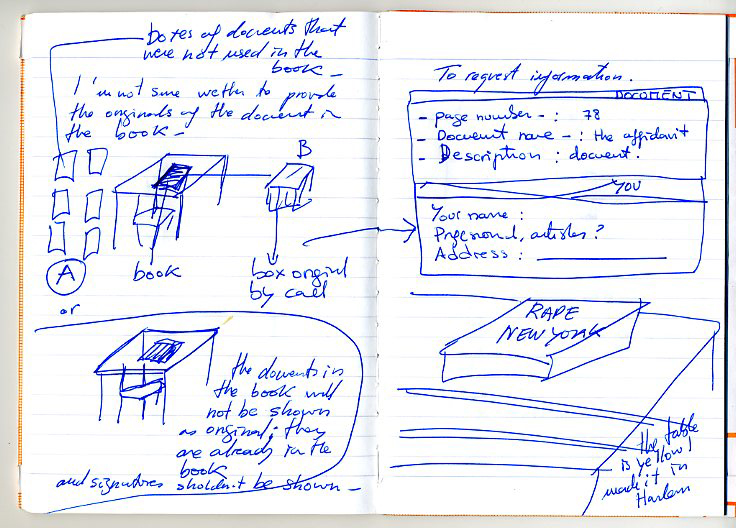 boxes of docuents that
were not used in the
book -
I'm not sure wether to provide
the originals of the docuent in
the book -
B
book
box original
by call
A
or
the docuents in
the book will
not be shown
as original, they
are already in the
book
and signatures shouldn't be shown -
To request information.
DOCUMENT
- page number - : 78
- Document name - : the affidavit
- Description : document.
YOU
Your name :
Profesional, articles?
Address :
RAPE
NEW YORK
the table
is yellow I
made it in
Harlem